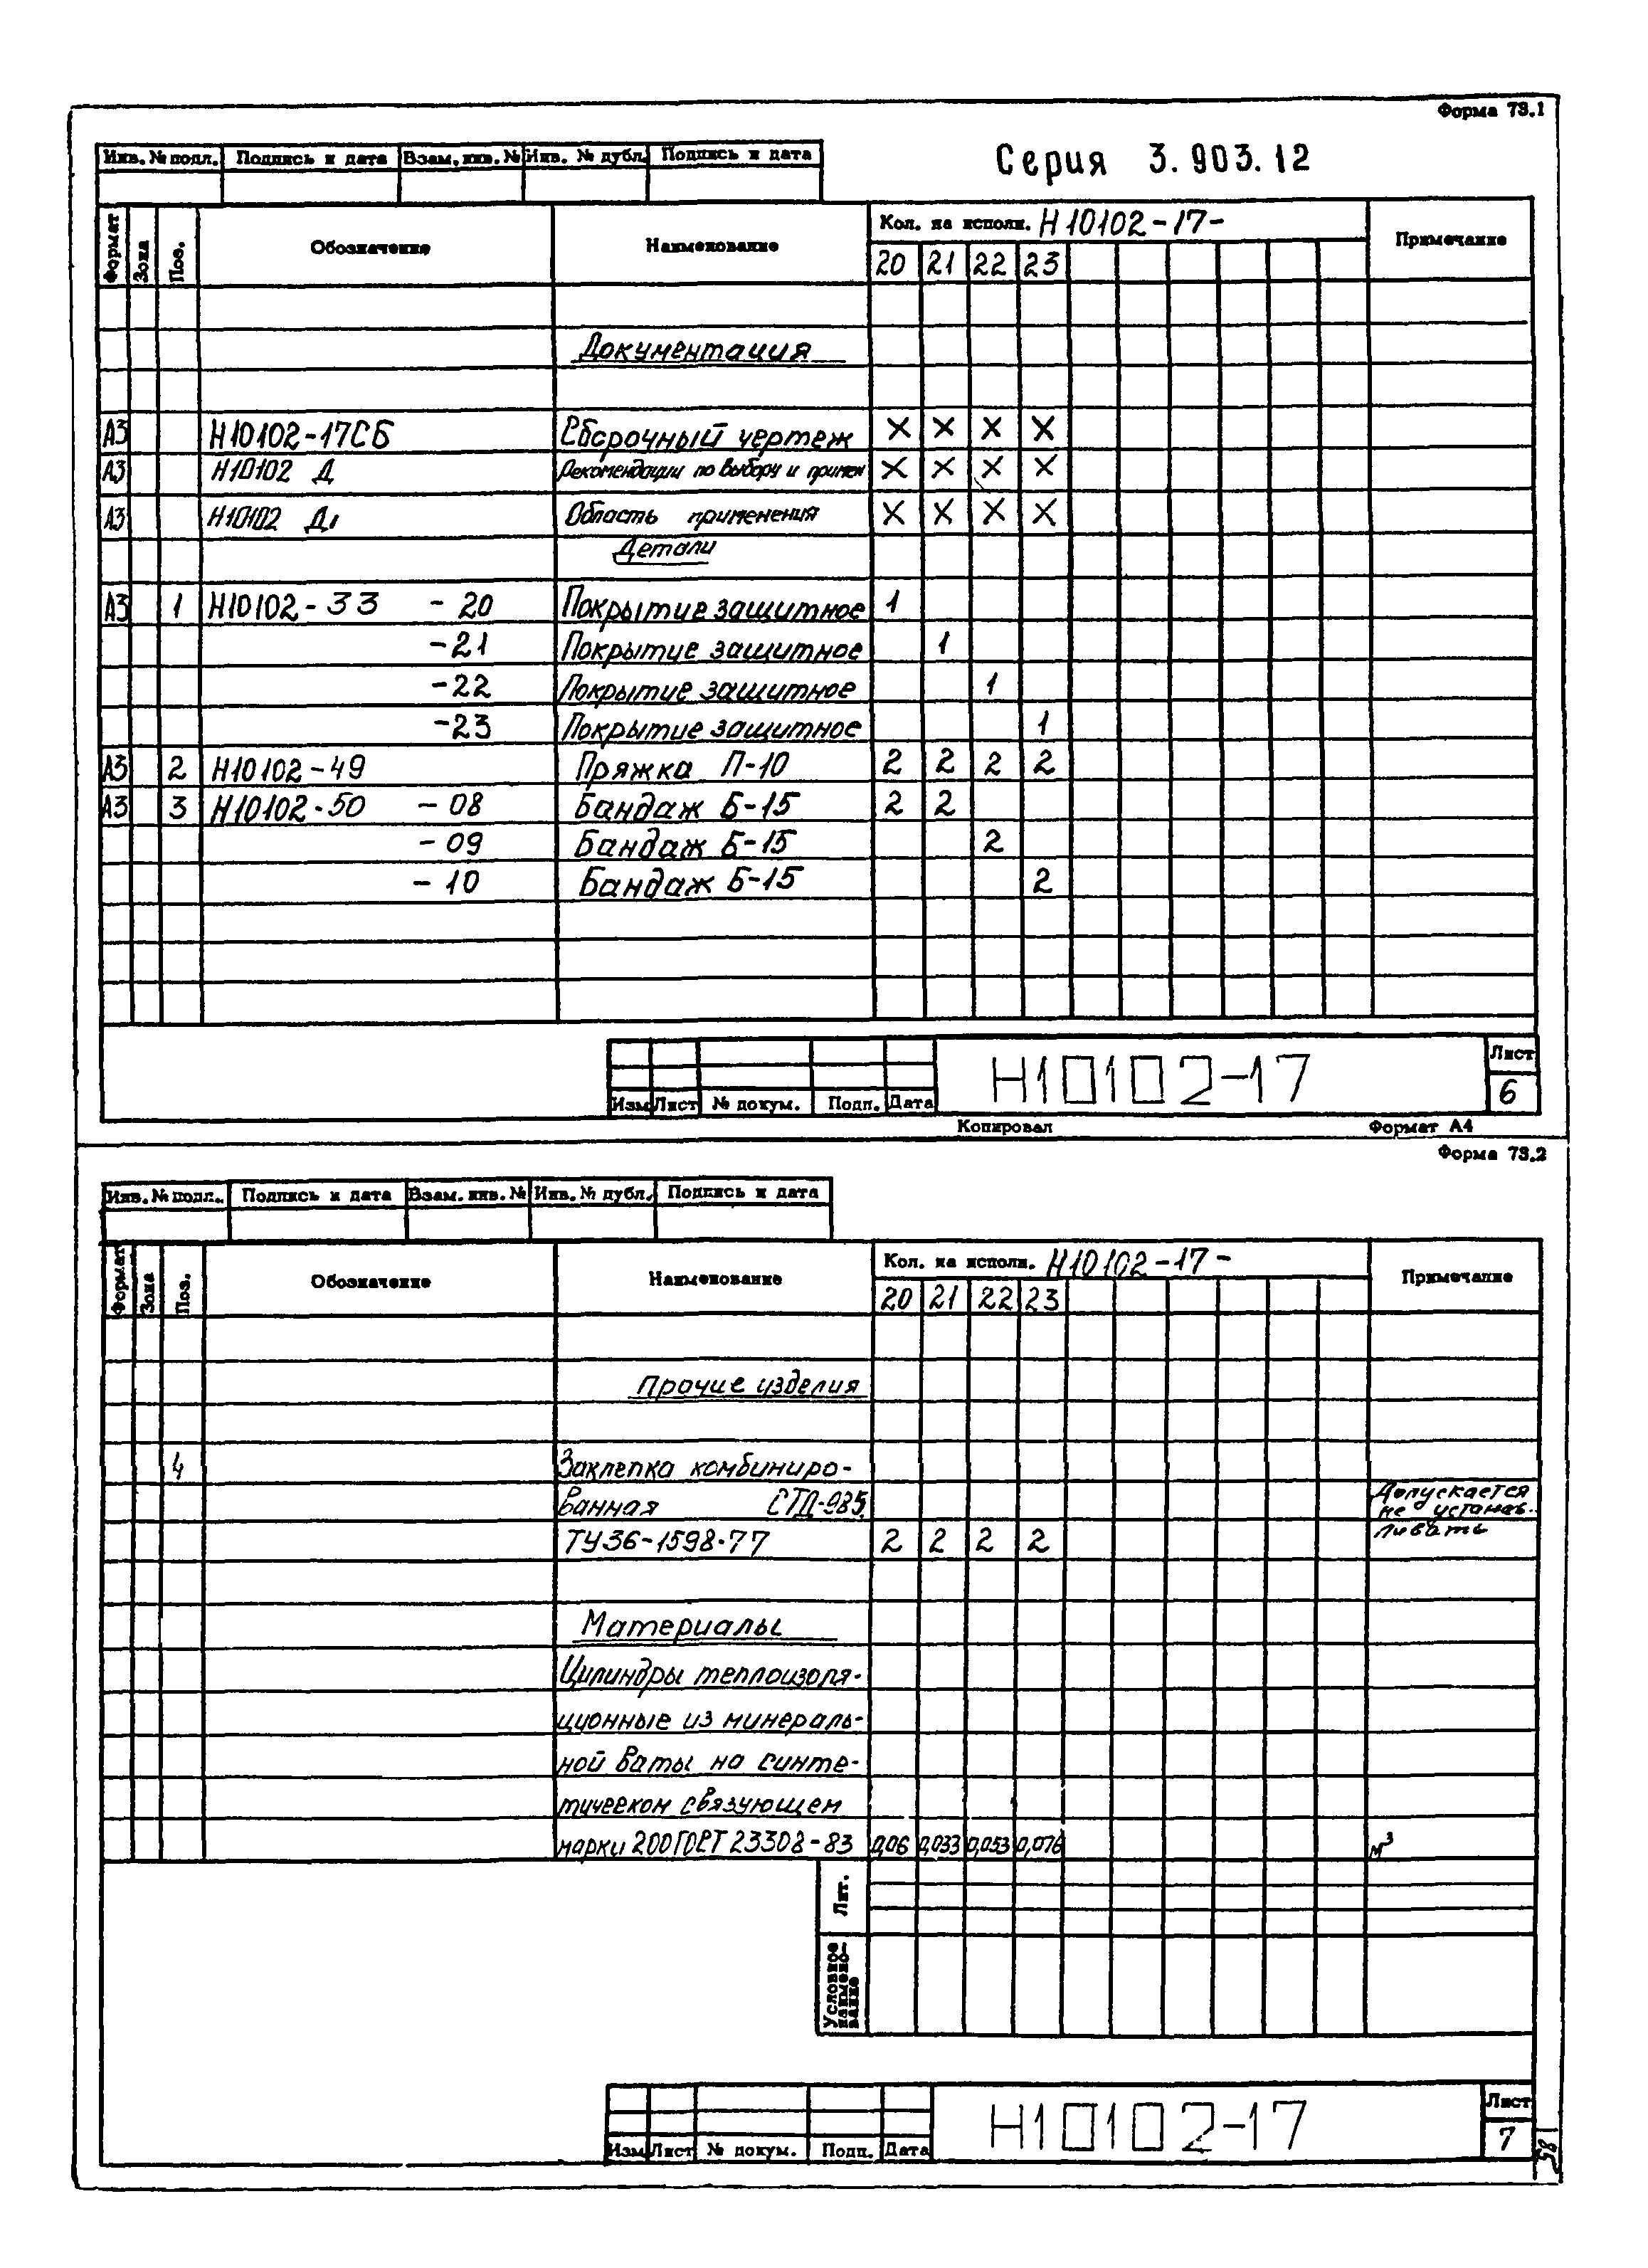 Форма 73.1
Серия 3.903.12
Инв. № подл. Подпись и дата Взам. инв. № Инв. № дубл. Подпись и дата
Формат Зона Поз. Обозначение Наименование Кол. на исполн. Н10102-17- Примечание
20 21 22 23
Документация
А3 Н10102-17СБ Сборочный чертеж X X X X
А3 Н10102 Д Рекомендации по выбору и примен X X X X
А3 Н10102 Д1 Область применения X X X X
Детали
А3 1 Н10102-33 -20 Покрытие защитное 1
-21 Покрытие защитное 1
-22 Покрытие защитное 1
-23 Покрытие защитное 1
А3 2 Н10102-49 Пряжка П-10 2 2 2 2
А3 3 Н10102-50 -08 Бандаж Б-15 2 2
-09 Бандаж Б-15 2
-10 Бандаж Б-15 2
Изм Лист № докум. Подп. Дата
Н10102-17
Лист
6
Копировал Формат А4
Форма 73.2
Инв. № подл. Подпись и дата Взам. инв. № Инв. № дубл. Подпись и дата
Формат Зона Поз. Обозначение Наименование Кол. на исполн. Н10102-17- Примечание
20 21 22 23
Прочие изделия
4 Заклепка комбиниро-
ванная СТД-985 Допускается
не устанав-
ТУ36-1598-77 2 2 2 2 ливать
Материалы
Цилиндры теплоизоля-
ционные из минераль-
ной ваты на синте-
тическом связующем
марки 200 ГОСТ 23308-83 0,06 0,033 0,053 0,076 м³
Лит.
Условное наимено-вание
Изм Лист № докум. Подп. Дата
Н10102-17
Лист
7